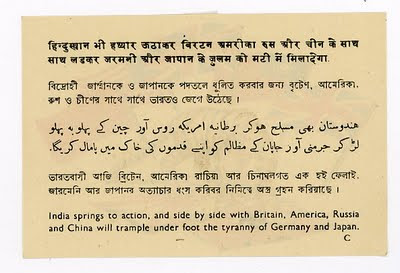 हिन्दुस्थान भी हथ्यार ऊठाकर ब्रिटन अमरीका रूस और चीन के साथ
साथ लडकर जरमनी और जापान के जुलम को मटी में मिलादेगा.
বিদ্রোহী জার্ম্মানকে ও জাপানকে পদতলে ধূলিত করবার জন্য বৃটেণ, আমেরিকা,
রুশ ও চীণের সাথে সাথে ভারতও জেগে উঠেছে ।
هندوستان بھی مسلح ہوکر برطانیہ امریکہ روس اور چین کے پہلو بہ پہلو
لڑ کر جرمنی اور جاپان کے مظالم کو اپنے قدموں کی خاک میں پامال کریگا۔
ভাৰতবাসী আজি ব্ৰিটেন, আমেৰিকা ৰাচিয়া আৰু চিনাৰলগত এক হই ফেলাই,
জাৰমেনি আৰু জাপানৰ অত্যাচাৰ ধংস কৰিবৰ নিমিত্তে অস্ত্ৰ গ্ৰহন কৰিয়াছে ।
India springs to action, and side by side with Britain, America, Russia
and China will trample under foot the tyranny of Germany and Japan.
C